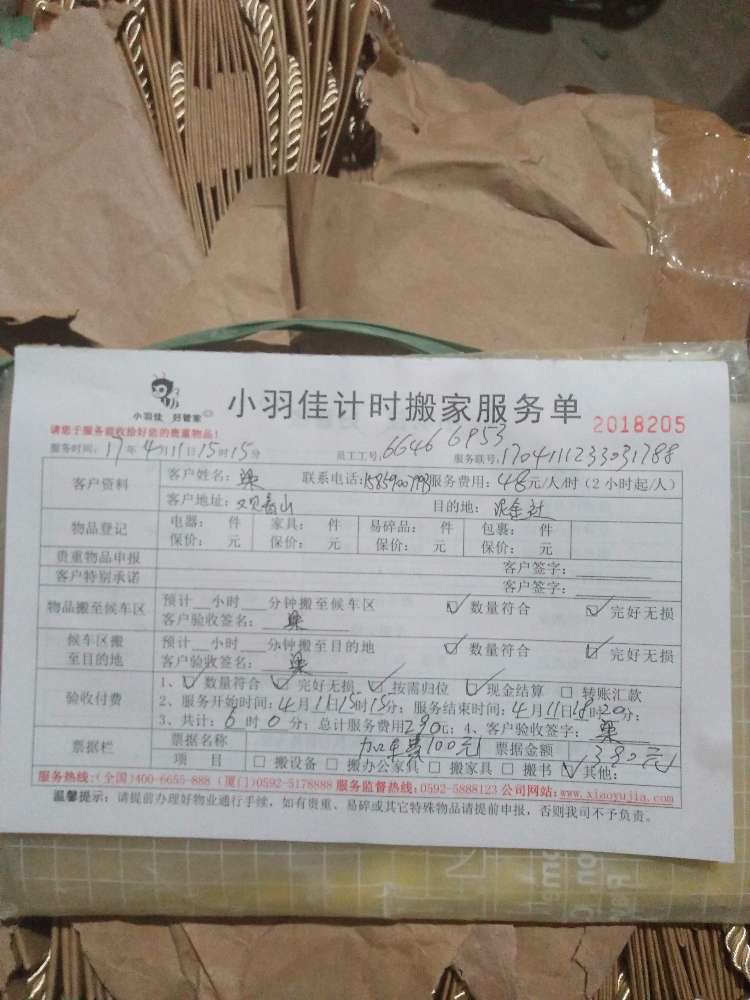 小羽佳 好管家
小羽佳计时搬家服务单
2018205
请您于服务前收拾好您的贵重物品!
服务时间: 17年4月11日15时15分 员工工号: 6646 6953 服务联号: 1704111233031788
客户资料
客户姓名: 梁 联系电话: 服务费用: 48元/人/时(2小时起/人)
客户地址: 观音山 目的地:
物品登记
电器: 件 家具: 件 易碎品: 件 包裹: 件
保价: 元 保价: 元 保价: 元 保价: 元
贵重物品申报 客户签字:
客户特别承诺 客户签字:
物品搬至候车区
预计__小时__分钟搬至候车区 ☑数量符合 ☑完好无损
客户验收签名: 梁
候车区搬至目的地
预计__小时__分钟搬至目的地 ☑数量符合 ☑完好无损
客户验收签名: 梁
验收付费
1、☑数量符合 ☑完好无损 ☑按需归位 ☑现金结算 □转账汇款
2、服务开始时间: 4月11日15时15分; 服务结束时间: 4月11日18时20分;
3、共计: 6时0分; 总计服务费用290元; 4、客户验收签字: 梁
票据栏
票据名称 加车费100元 票据金额 390元
项 目 □搬设备 □搬办公家具 □搬家具 □搬书 ☑其他:
服务热线:(全国)400-6655-888 (厦门)0592-5178888 服务监督热线:0592-5888123 公司网站:www.xiaoyujia.com
温馨提示: 请提前办理好物业通行手续, 如有贵重、易碎或其它特殊物品请提前申报, 否则我司不予负责。